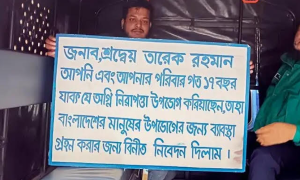 জনাব,শ্রদ্ধেয় তারেক রহমান
আপনি এবং আপনার পরিবার গত ১৭ বছর
যাবত যে অগ্নি নিরাপত্তা উপভোগ করিয়াছেন,তাহা
বাংলাদেশের মানুষের উপভোগের জন্য ব্যবস্থা
গ্রহন করার জন্য বিনীত নিবেদন দিলাম ।